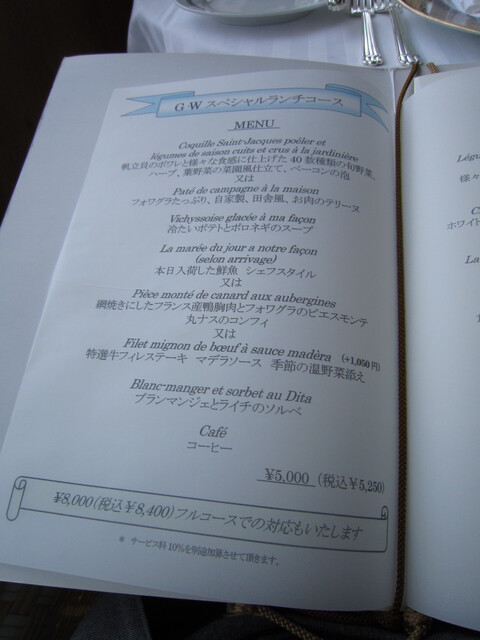 G·W スペシャルランチコース
MENU
Coquille Saint-Jacques poêler et
légumes de saison cuits et crus à la jardinière
帆立貝のポワレと様々な食感に仕上げた 40 数種類の旬野菜、
ハーブ、葉野菜の菜園風仕立て、ベーコンの泡
又は
Paté de campagne à la maison
フォワグラたっぷり、自家製、田舎風、お肉のテリーヌ
Vichyssoise glacée à ma façon
冷たいポテトとポロネギのスープ
La marée du jour a notre façon
(selon arrivage)
本日入荷した鮮魚 シェフスタイル
又は
Pièce monté de canard aux aubergines
網焼きにしたフランス産鴨胸肉とフォワグラのピエスモンテ
丸ナスのコンフィ
又は
Filet mignon de bœuf à sauce madèra (+1,050円)
特選牛フィレステーキ マデラソース 季節の温野菜添え
Blanc-manger et sorbet au Dita
ブランマンジェとライチのソルベ
Café
コーヒー
¥5,000 (税込¥5,250)
¥8,000(税込¥8,400)フルコースでの対応もいたします
* サービス料 10%を別途加算させて頂きます。
Légu
様々
ホワイト
La